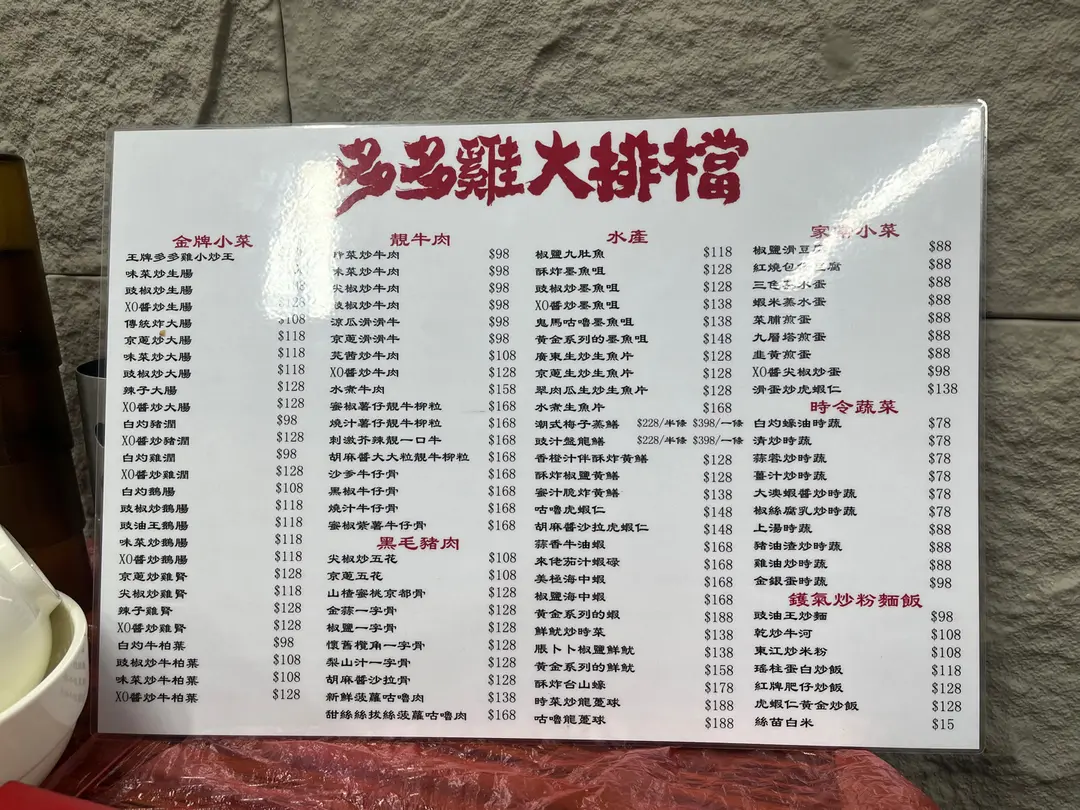 多多雞大排檔
金牌小菜
王牌多多雞小炒王
味菜炒生腸
豉椒炒生腸
XO醬炒生腸 $128
傳統炸大腸 $108
京蔥炒大腸 $118
味菜炒大腸 $118
豉椒炒大腸 $118
辣子大腸 $128
XO醬炒大腸 $128
白灼豬潤 $98
XO醬炒豬潤 $128
白灼雞潤 $98
XO醬炒雞潤 $128
白灼鵝腸 $108
豉椒炒鵝腸 $118
豉油王鵝腸 $118
味菜炒鵝腸 $118
XO醬炒鵝腸 $118
京蔥炒雞腎 $128
尖椒炒雞腎 $118
辣子雞腎 $128
XO醬炒雞腎 $128
白灼牛柏葉 $98
豉椒炒牛柏葉 $108
味菜炒牛柏葉 $108
XO醬炒牛柏葉 $128
靚牛肉
菜炒牛肉 $98
味菜炒牛肉 $98
尖椒炒牛肉 $98
豉椒炒牛肉 $98
涼瓜滑滑牛 $98
京蔥滑滑牛 $98
芫茜炒牛肉 $108
XO醬炒牛肉 $128
水煮牛肉 $158
蜜椒薯仔靚牛柳粒 $168
燒汁薯仔靚牛柳粒 $168
刺激芥辣靚一口牛 $168
胡麻醬大大粒靚牛柳粒 $168
沙爹牛仔骨 $168
黑椒牛仔骨 $168
燒汁牛仔骨 $168
蜜椒紫薯牛仔骨 $168
黑毛豬肉
尖椒炒五花 $108
京蔥五花 $108
山楂蜜桃京都骨 $128
金蒜一字骨 $128
椒鹽一字骨 $128
懷舊欖角一字骨 $128
梨山汁一字骨 $128
胡麻醬沙拉骨 $128
新鮮菠蘿咕嚕肉 $138
甜絲絲拔絲菠蘿咕嚕肉 $168
水產
椒鹽九肚魚 $118
酥炸墨魚咀 $128
豉椒炒墨魚咀 $128
XO醬炒墨魚咀 $138
鬼馬咕嚕墨魚咀 $138
黃金系列的墨魚咀 $148
廣東生炒生魚片 $128
京蔥生炒生魚片 $128
翠肉瓜生炒生魚片 $128
水煮生魚片 $168
潮式梅子蒸鱔 $228/半條 $398/一條
豉汁盤龍鱔 $228/半條 $398/一條
香橙汁伴酥炸黃鱔 $128
酥炸椒鹽黃鱔 $128
蜜汁脆炸黃鱔 $138
咕嚕虎蝦仁 $148
胡麻醬沙拉虎蝦仁 $148
蒜香牛油蝦 $168
來佬茄汁蝦碌 $168
美極海中蝦 $168
椒鹽海中蝦 $168
黃金系列的蝦 $188
鮮魷炒時菜 $138
脹卜卜椒鹽鮮魷 $138
黃金系列的鮮魷 $158
酥炸台山蠔 $178
時菜炒龍躉球 $188
咕嚕龍躉球 $188
家常小菜
椒鹽滑豆腐 $88
紅燒包公豆腐 $88
三色蒸水蛋 $88
蝦米蒸水蛋 $88
菜脯煎蛋 $88
九層塔煎蛋 $88
韭黃煎蛋 $88
XO醬尖椒炒蛋 $98
滑蛋炒虎蝦仁 $138
時令蔬菜
白灼蠔油時蔬 $78
清炒時蔬 $78
蒜蓉炒時蔬 $78
薑汁炒時蔬 $78
大澳蝦醬炒時蔬 $78
椒絲腐乳炒時蔬 $78
上湯時蔬 $88
豬油渣炒時蔬 $88
雞油時蔬 $88
金銀蛋時蔬 $98
鑊氣炒粉麵飯
豉油王炒麵 $98
乾炒牛河 $108
東江炒米粉 $108
瑤柱蛋白炒飯 $118
紅牌肥仔炒飯 $128
虎蝦仁黃金炒飯 $128
絲苗白米 $15